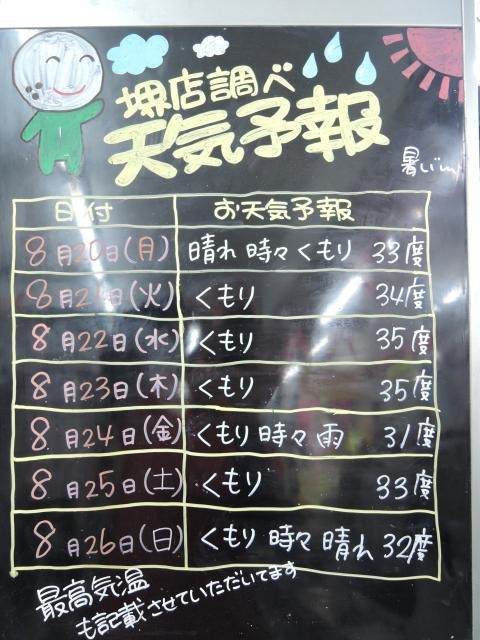 堺店調べ
天気予報
暑い〜
日付 お天気予報
8月20日(月) 晴れ 時々 くもり 33度
8月21日(火) くもり 34度
8月22日(水) くもり 35度
8月23日(木) くもり 35度
8月24日(金) くもり 時々 雨 31度
8月25日(土) くもり 33度
8月26日(日) くもり 時々 晴れ 32度
最高気温
も記載させていただいてます